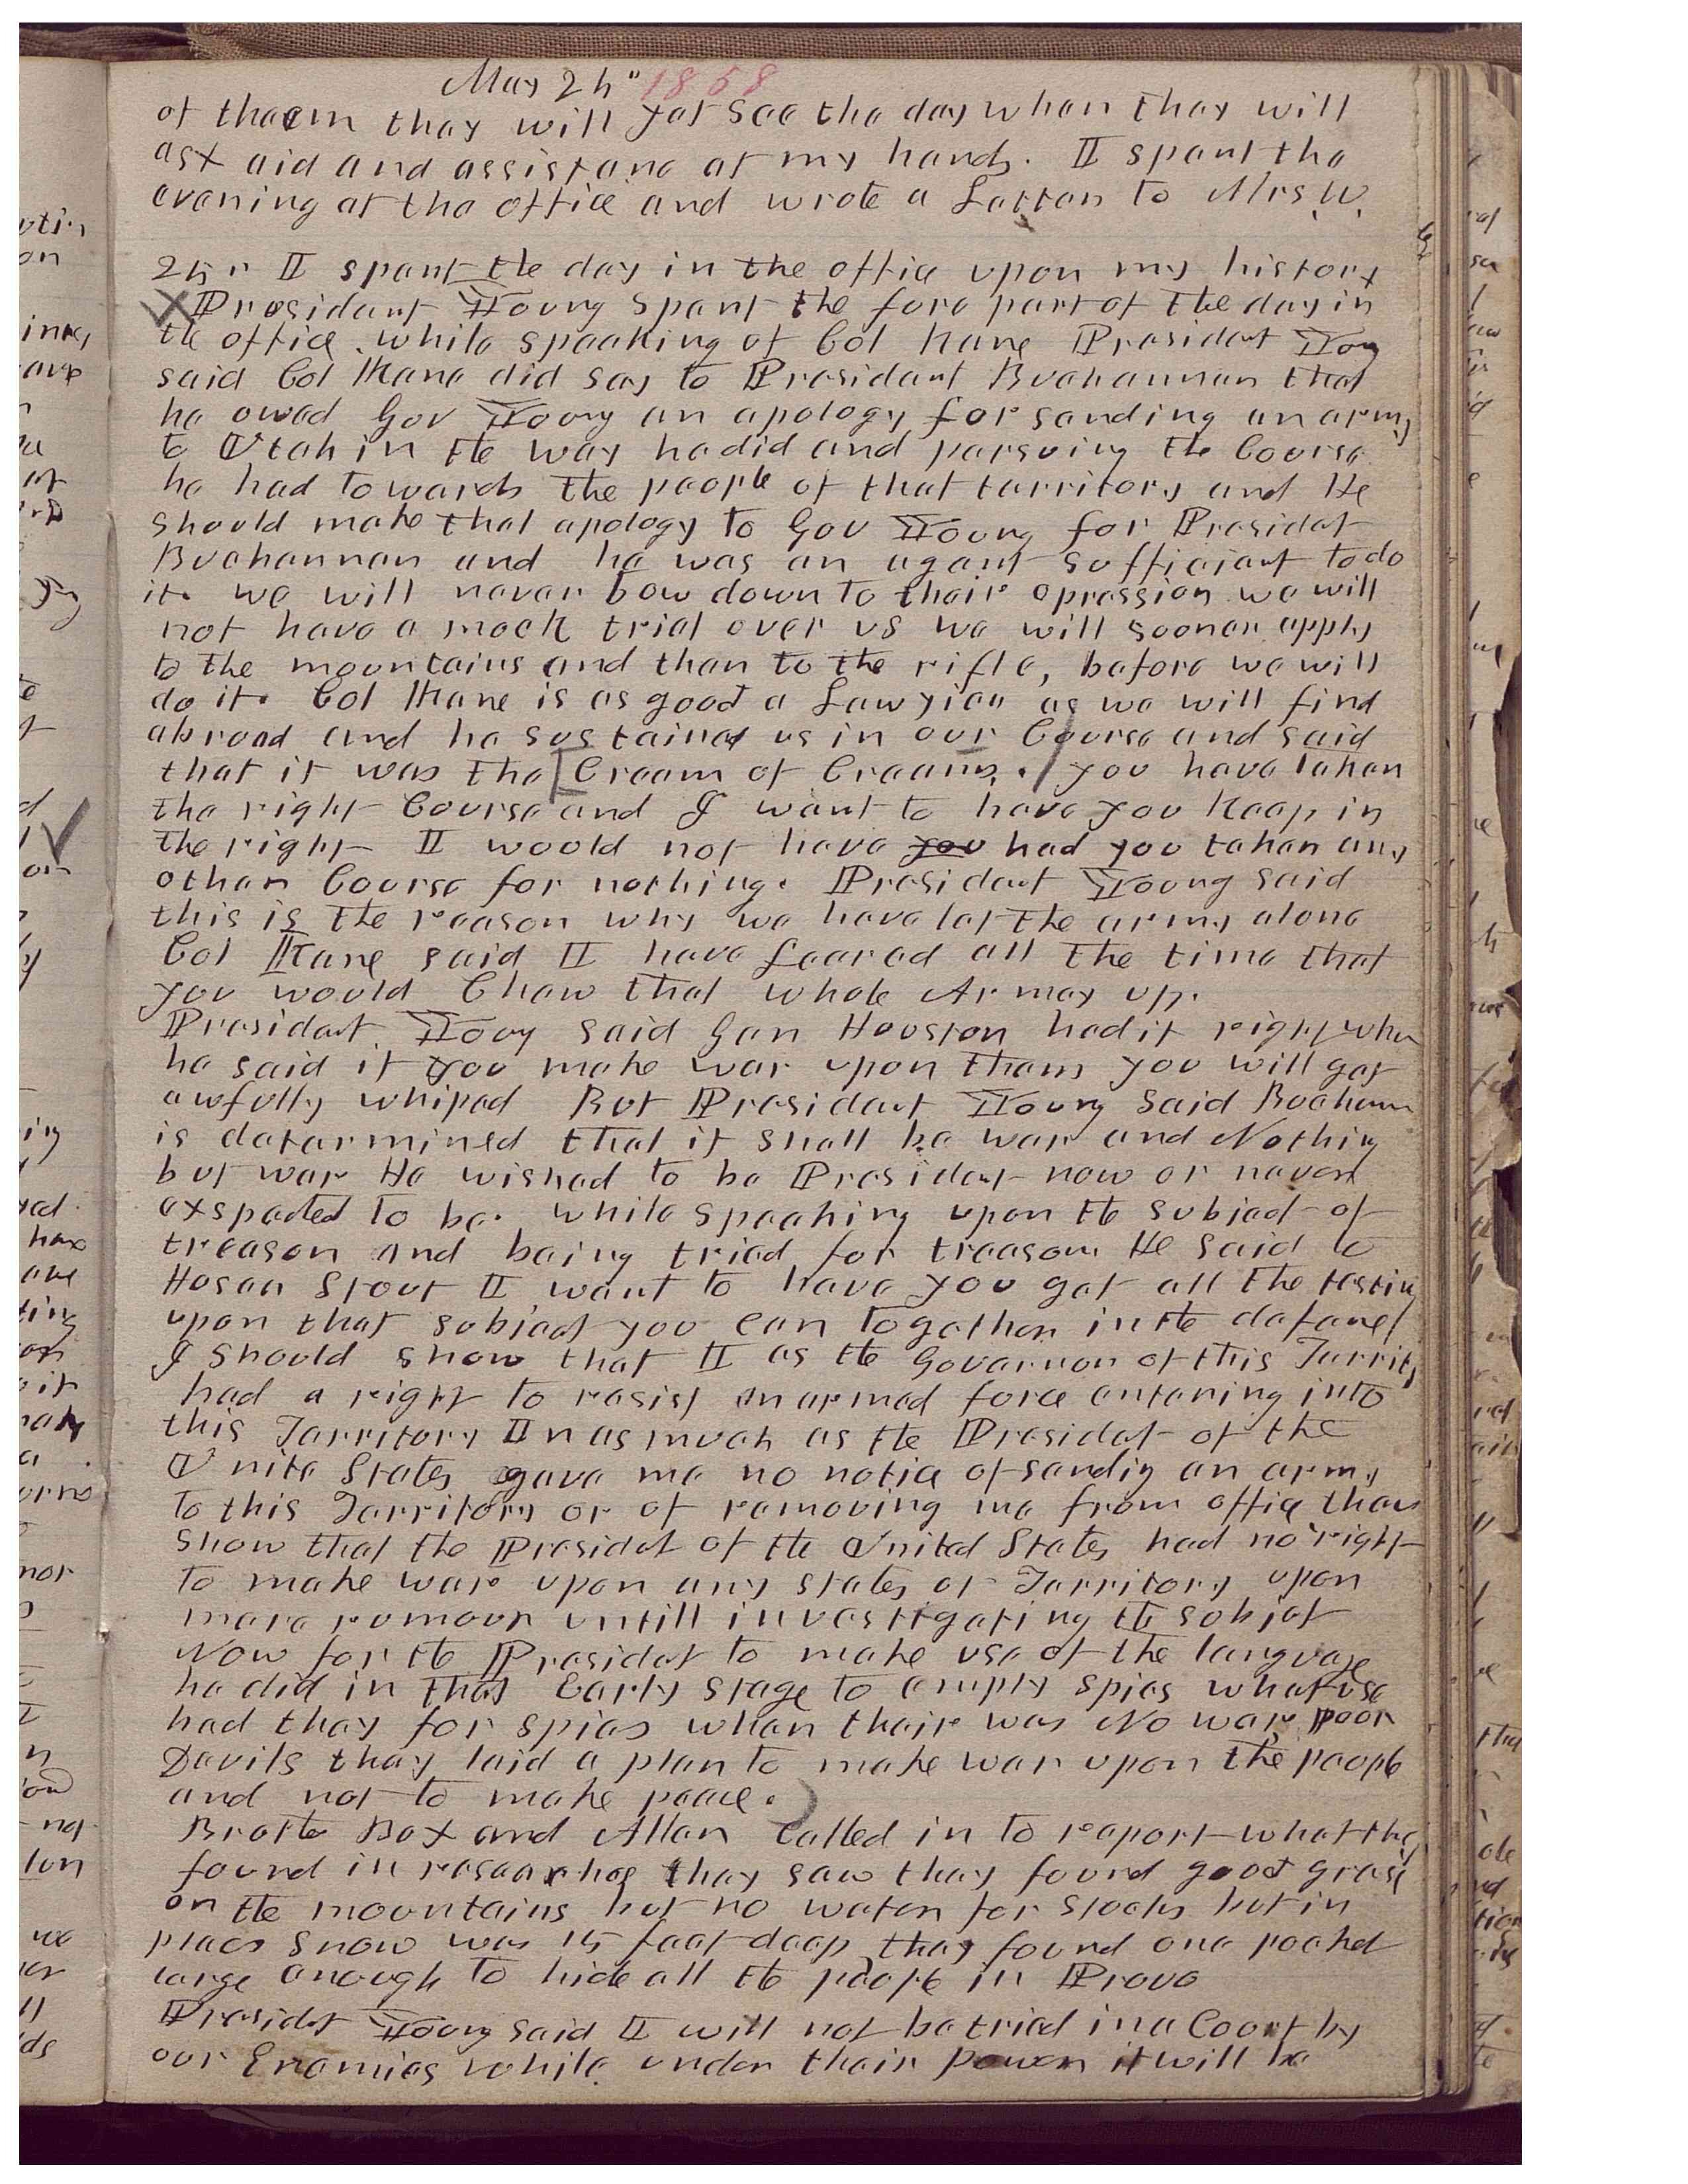 May 25" 1858
of thaem they will yet see the day when they will
ask aid and assistanc at my hands. I spent the
evening at the office and wrote a Letter to Mrs W.
25" I spent the day in the office upon my history
President Young spent the fore part of the day in
the office. while speaking of Col Kane President Young
said Col Kane did say to President Buchannan that
he owed Gov Young an apology for sending an army
to Utah in the way he did and persuing the Course
he had towards the people of that territory and He
should make that apology to Gov Young for Presidet
Buchannan and he was an agent sufficient to do
it. we will never bow down to their opression we will
not have a mock trial over us we will sooner apply
to the mountains and then to the rifle, before we will
do it. Col Kane is as good a Lawyier as we will find
abroad and he sustained us in our Course and said
that it was the [Cream of Creams. / you have taken
the right Course and I want to have you keep in
the right I would not have you had you taken any
other Course for nothing. President Young said
this is the reason why we have let the army alone
Col Kane said I have feared all the time that
you would Chew that whole Ar may up.
President Young said Gen Houston had it right when
he said if you make war upon them you will get
awfully whiped But President Young said Bucham
is determined that it shall be war and Nothing
but war He wished to be President now or never
expected to be. while speaking upon the subject of
treason and being tried for treason He said to
Hosea Stout I want to have you get all the testimy
upon that subject you can together in the defence
I should show that I as the Governor of this Territy
had a right to resist an armed force entering into
this Territory In as much as the Presidet of the
Unite States gave me no notice of sendig an army
to this Territory or of removing me from office then
show that the Presidet of the United States had no right
to make war upon any states or Territory upon
mere rumour untill investigating the subjet
Now for the Presidet to make use of the language
he did in that Early stage to employ spies what use
had they for spies when their was No war poor
Devils they laid a plan to make war upon the people
and not to make peace.)
Brothe Box and Allen Called in to report what they
found in researches they saw they found good grass
on the mountains but no water for stocks but in
places snow was 15 feet deep they found one pocket
large enough to hide all the people in Provo
Presidet Young said I will not be tried in a Court by
our Enemies while under their power it will be